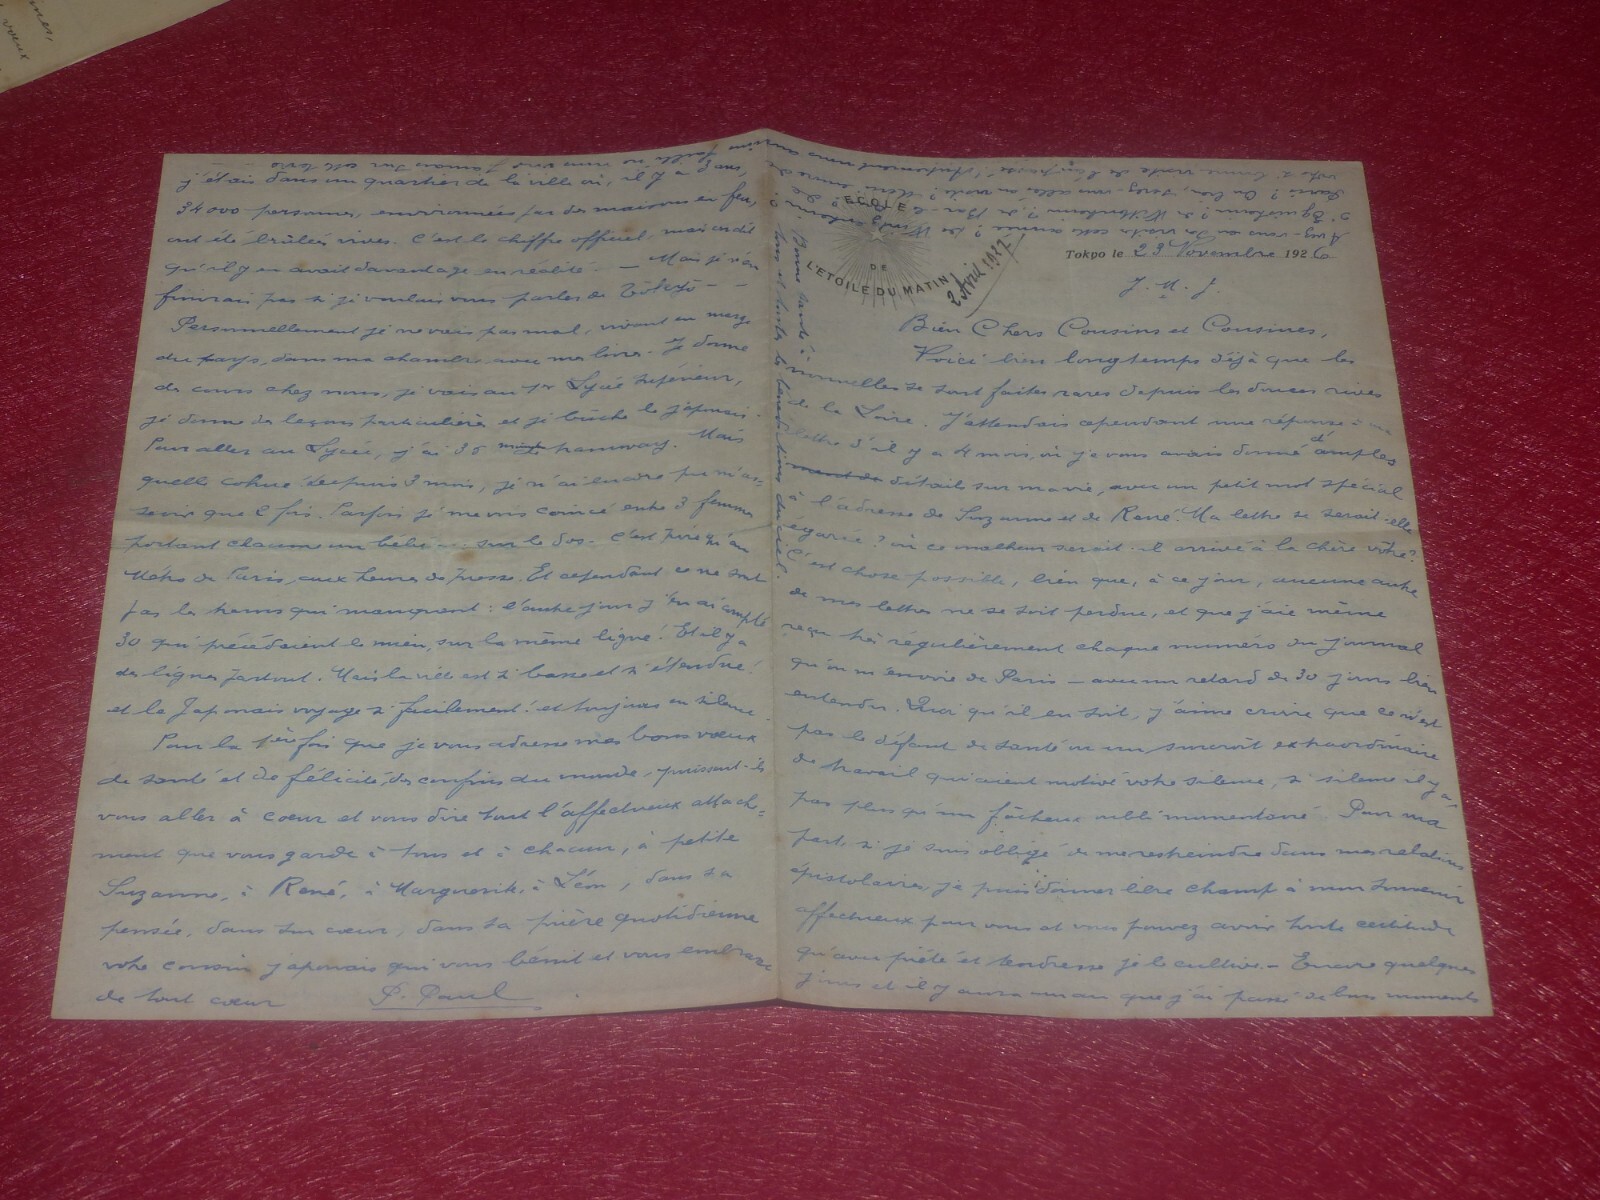 ECOLE
DE
L'ETOILE DU MATIN
2 Avril 1927
Tokyo le 23 Novembre 1926
J. M. J.
Bien Chers Cousins et Cousines,
Voici bien longtemps déjà que les
nouvelles se sont faites rares depuis les douces rives
de la Loire. J'attendais cependant une réponse à ma
lettre d'il y a 4 mois, où je vous avais donné d'amples
détails sur ma vie, avec un petit mot spécial
à l'adresse de Suzanne et de René. Ma lettre se serait-elle
égarée? ou ce malheur serait-il arrivé à la chère vôtre?
C'est chose possible, bien que, à ce jour, aucune autre
de mes lettres ne se soit perdue, et que j'aie même
reçu très régulièrement chaque numéro du journal
qu'on m'envoie de Paris — avec un retard de 30 jours bien
entendu. Quoi qu'il en soit, j'aime croire que ce n'est
pas le défaut de santé ou un surcroît extraordinaire
de travail qui aient motivé votre silence, si silence il y a,
pas plus qu'un fâcheux oubli momentané. Pour ma
part, si je suis obligé de me restreindre dans mes relations
épistolaires, je puis donner libre champ à mon souvenir
affectueux pour vous et vous pouvez avoir toute certitude
qu'avec piété et tendresse je le cultive. — Encore quelques
jours et il y aura un an que j'ai passé de bons moments
j'étais dans un quartier de la ville où, il y a 3 ans,
34 000 personnes, environnées par des maisons en feu,
ont été brûlées vives. C'est le chiffre officiel, mais on dit
qu'il y en avait davantage en réalité. — Mais je n'en
finirais pas si je voulais vous parler de Tôkyô —
Personnellement je ne vais pas mal, vivant en marge
du pays, dans ma chambre avec mes livres. Je donne
des cours chez nous, je vais au 1er Lycée Supérieur,
je donne des leçons particulières et je bûche le japonais.
Pour aller au Lycée, j'ai 35 tramway. Mais
quelle cohue! depuis 3 mois, je n'ai encore pu m'as-
seoir que 2 fois. Parfois je me vois coincé entre 3 femmes
portant chacune un bébé sur le dos. C'est pire qu'au
Métro de Paris, aux heures de presse. Et cependant ce ne sont
pas les trams qui manquent: l'autre jour j'en ai compté
30 qui précédaient le mien, sur la même ligne! Et il y a
des lignes partout. Mais la ville est si basse et si étendue!
et le Japonais voyage si facilement! et toujours en silence.
Pour la 1ère fois que je vous adresse mes bons vœux
de santé et de félicité, des confins du monde, puissent-ils
vous aller à cœur et vous dire tout l'affectueux attach-
ment que vous garde à tous et à chacun, à petite
Suzanne, à René, à Marguerite, à Léon, dans sa
pensée, dans son cœur, dans sa prière quotidienne
votre cousin japonais qui vous bénit et vous embrasse
de tout cœur P. Paul
Bonne santé à
tous et toutes les bénédictions du ciel.